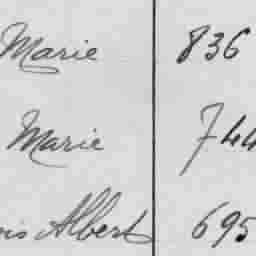 Marie 836
Marie 744
Albert 695